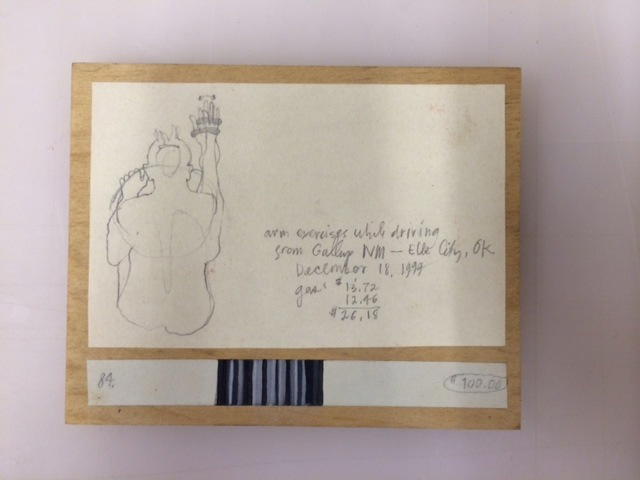 arm exercises while driving
from Gallup NM — Elk City, OK
December 18, 1997
gas: $13.72
12.46
$26.18
84.
$100.00